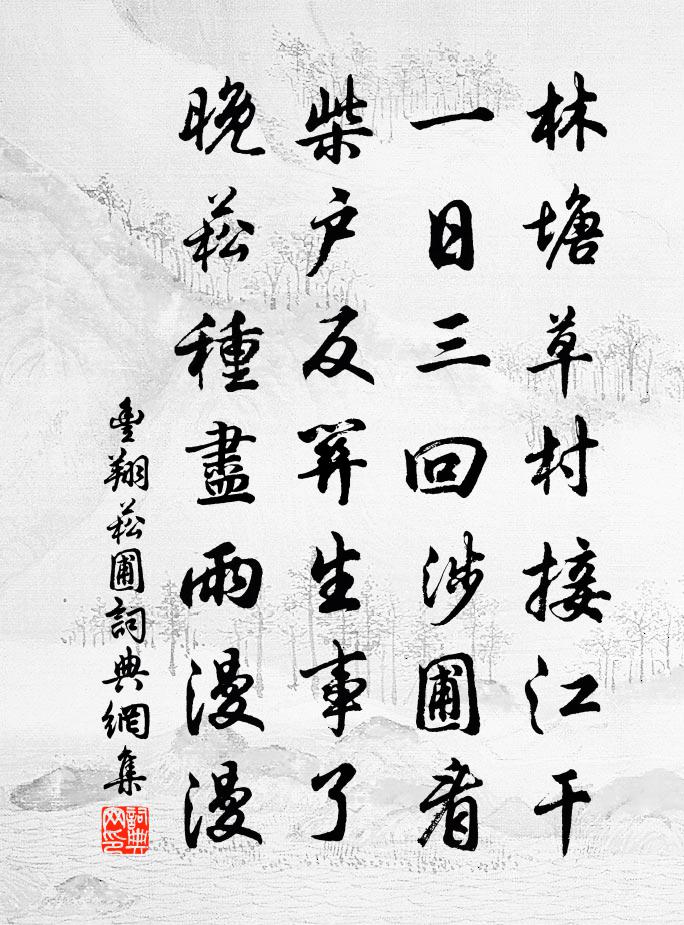 林塘草村接江干
一日三回涉圃看
柴户反關生事了
晚菘種盡雨漫漫
豐翔菘圃詞典網集
詞典网印